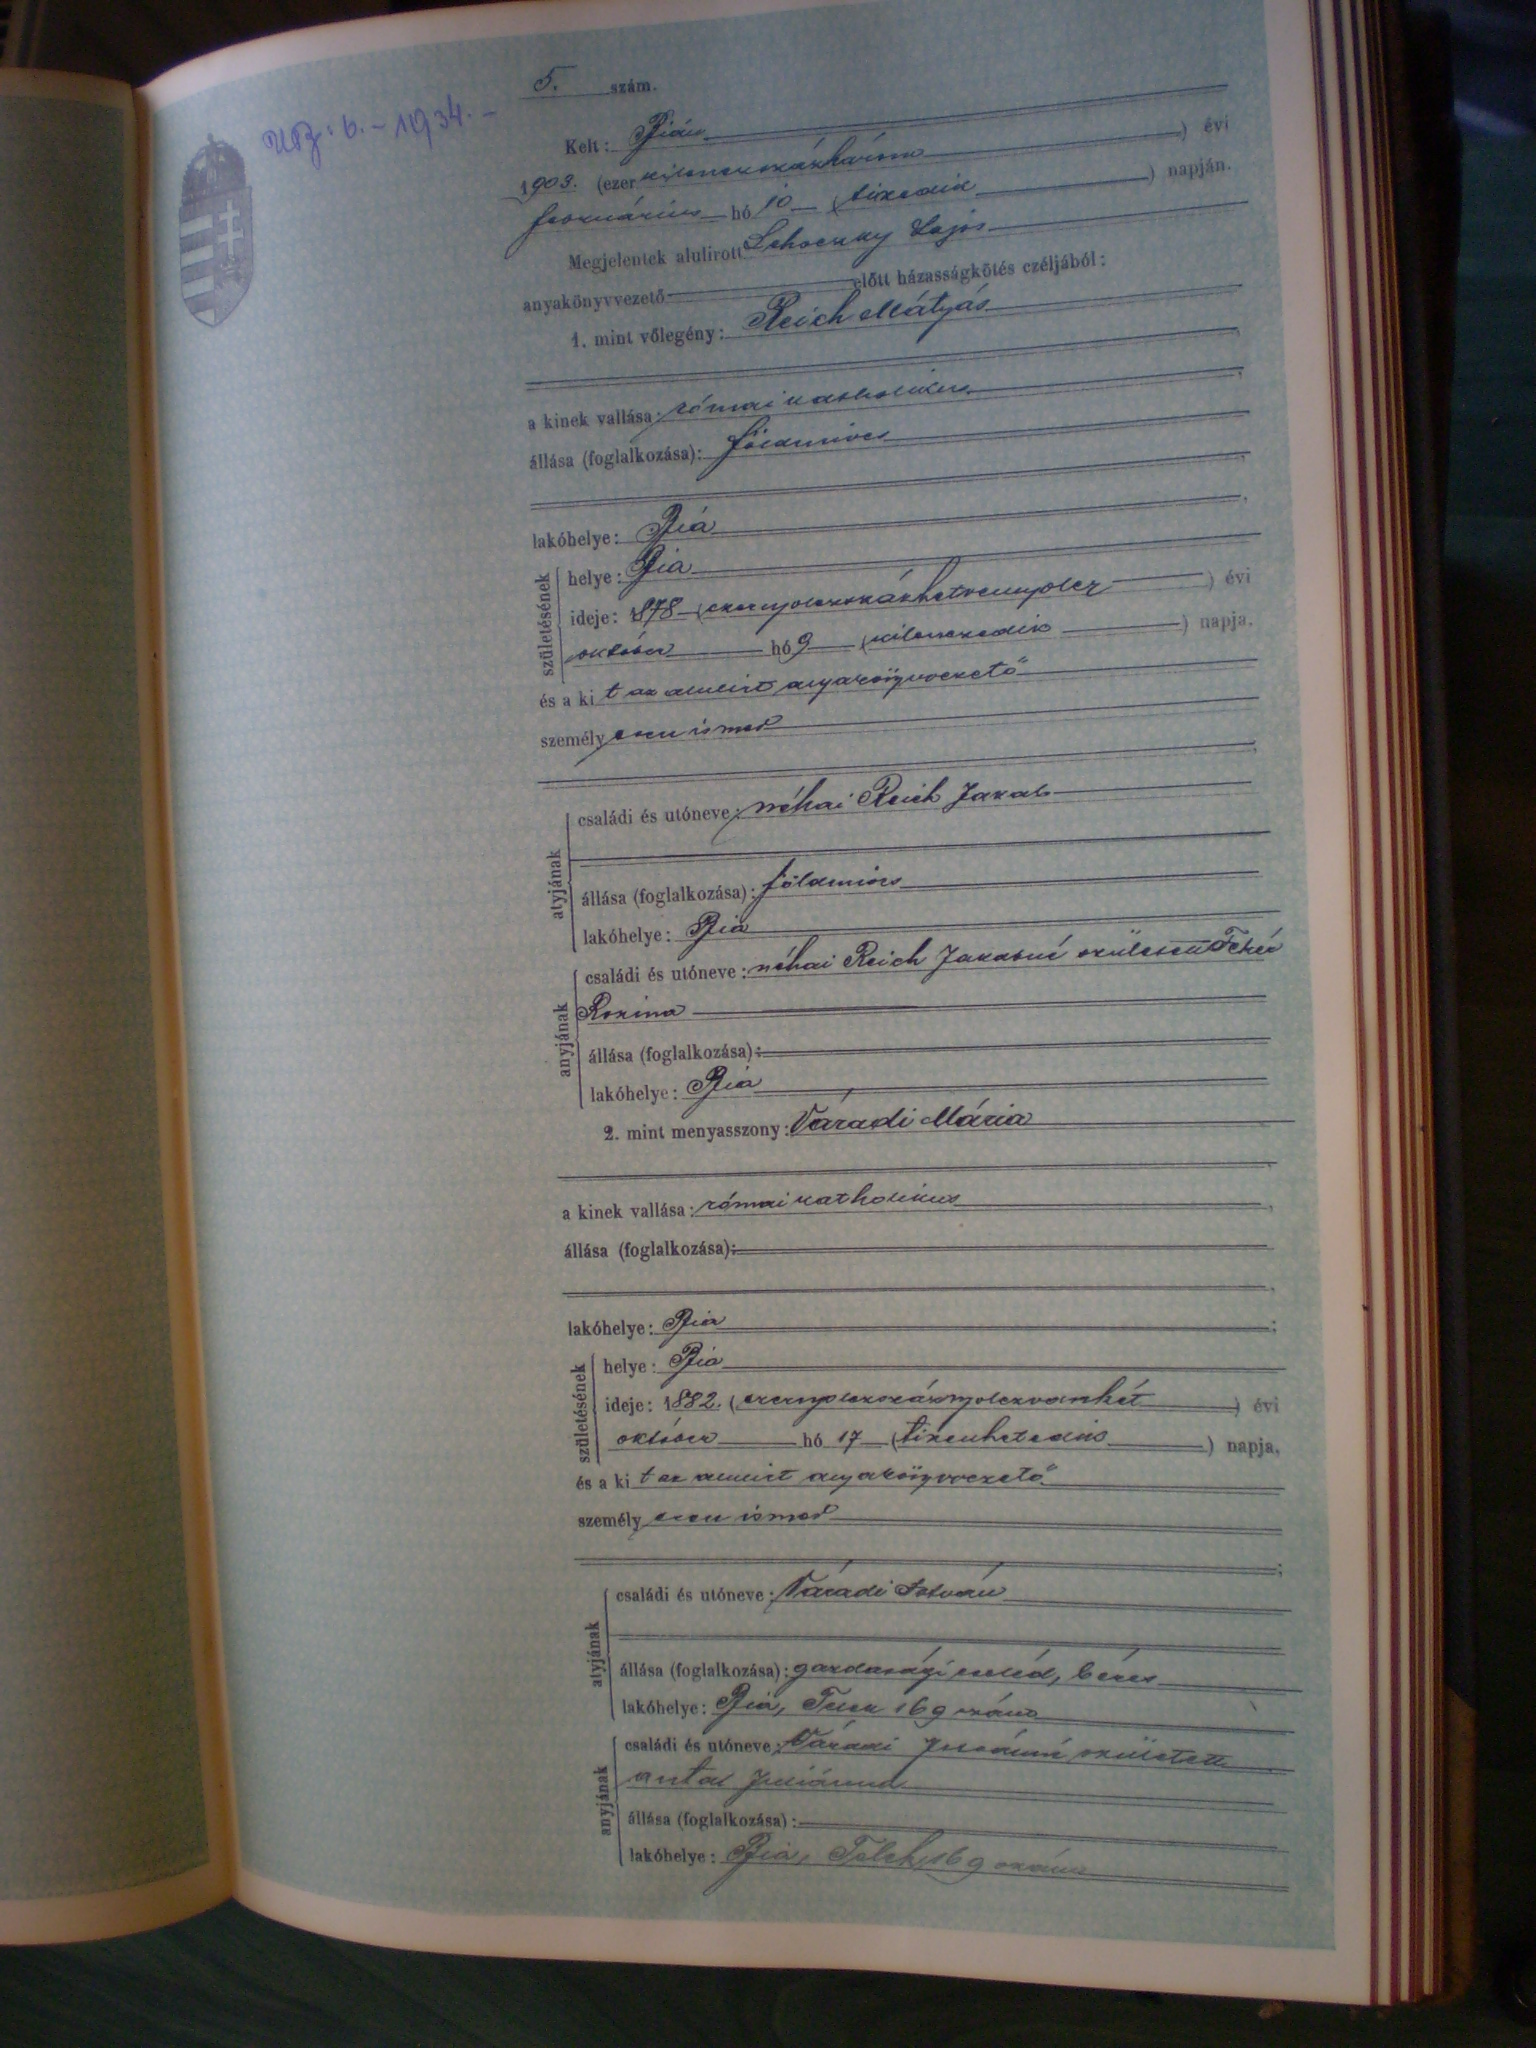 5. szám.
UB: 6. - 1934. -
Kelt: Bián
1903. (ezerkilenczszázhárom) évi
február hó 10 (tizedik) napján.
Megjelentek alulirott Schoczky Lajos
anyakönyvvezető előtt házasságkötés czéljából:
1. mint vőlegény: Reich Mátyás
a kinek vallása: római katholikus
állása (foglalkozása): földmives
lakóhelye: Bia
születésének
helye: Bia
ideje: 1878 (ezernyolczszázhetvennyolcz) évi
október hó 9 (kilenczedik) napja,
és a ki t az alulirt anyakönyvvezető
személy esen ismer
atyjának
családi és utóneve: néhai Reich Jakab
állása (foglalkozása): földmives
lakóhelye: Bia
anyjának
családi és utóneve: néhai Reich Jakabné született Fehér
Rozina
állása (foglalkozása):
lakóhelye: Bia
2. mint menyasszony: Váradi Mária
a kinek vallása: római katholikus
állása (foglalkozása):
lakóhelye: Bia
születésének
helye: Bia
ideje: 1882. (ezernyolczszáznyolczvankét) évi
október hó 17 (tizenhetedik) napja,
és a ki t az alulirt anyakönyvvezető
személy esen ismer
atyjának
családi és utóneve: Váradi István
állása (foglalkozása): gazdasági cseléd, béres
lakóhelye: Bia, 169 szám
anyjának
családi és utóneve: Váradi Istvánné született
Antal Juliánna
állása (foglalkozása):
lakóhelye: Bia, 169 szám